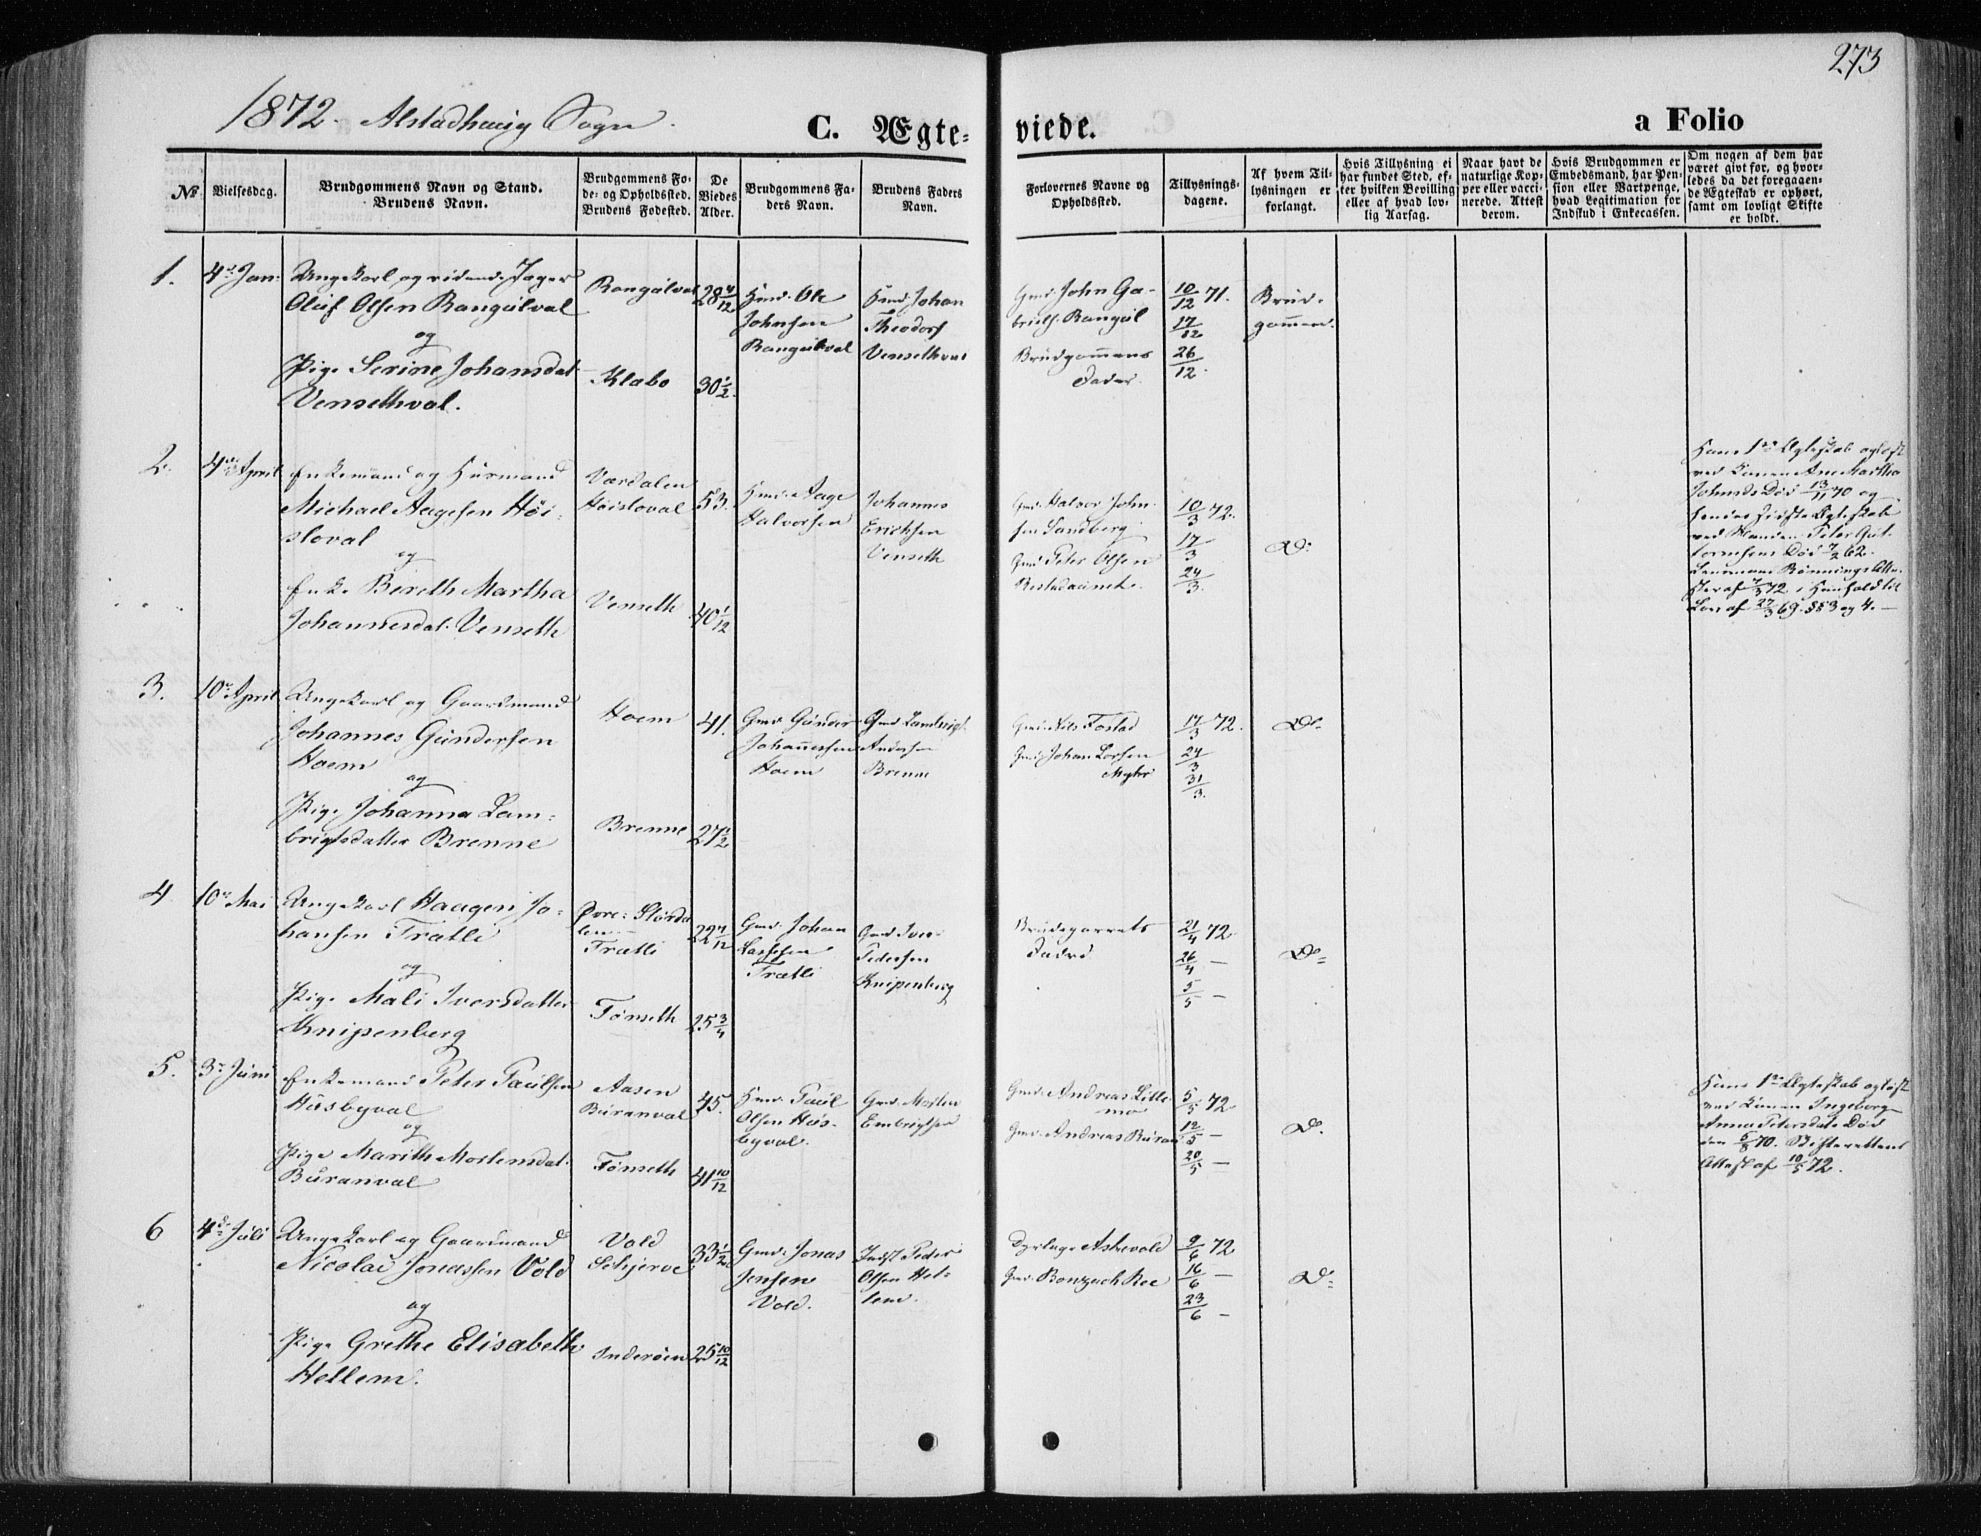 273
1872. Alstadhaug Sogn.
C. Ægteviede.
a Folio
№
Vielsesdag.
Brudgommens Navn og Stand.
Brudens Navn.
Brudgommens Fø-
de- og Opholdssted.
Brudens Fødested.
De
Viedes
Alder.
Brudgommens Fa-
ders Navn.
Brudens Faders
Navn.
Forlovernes Navne og
Opholdssted.
Tillysnings-
dagene.
Af hvem Til-
lysningen er
forlangt.
Hvis Tillysning ei
har fundet Sted, ef-
ter hvilken Bevilling
eller af hvad lov-
lig Aarsag.
Naar havt de
naturlige Kop-
per eller vacci-
nerede. Attest
derom.
Hvis Brudgommen er
Embedsmand, har Pen-
sion eller Vartpenge,
hvad Legitimation for
Indskud i Enkecassen.
Om nogen af dem har
været givt før, og hvor-
ledes da det foregaaen-
de Ægteskab er ophørt,
samt om lovligt Skifte
er holdt.
1.
4de Jan.
Ungekarl og ridende Jæger
Oluf Olsen Rangulval
og
Pige Serine Johansdat.
Vensethval.
Rangulval
Klabo
28
30 1/2
Hmd. Ole
Johnsen
Rangulval
Hmd. Johan
Theodorf
Vensethval
Gmd. John Ga-
briels. Rangul
Brudgommens
Fader.
10/12 71.
17/12
26/12
Brud-
gommen.
2.
4de April
Enkemand og Husmand
Michael Aagesen Höi-
sloval
og
Enke Bereth Martha
Johannesdat. Venseth
Værdalen
Höisloval
Venseth
53.
40 1/12
Hmd. Aage
Halvorsen
Johannes
Ericksen
Venseth
Gmd. Halvor John-
sen Sandberg
Gmd. Peter Olsen
10/3 72.
17/3
24/3
Do
Hans 1ste Ægteskab opløst
ved Konen Ane Martha
Johnsds Död 13/11 70 og
hendes første Ægteskab
ved Manden Peter Gut-
tormsens Död 62.
Lensmand Rönnings Atte-
ster af 72 i Henhold til
Lov af 27/3 69 §§ 3 og 4.
3.
10de April
Ungekarl og Gaardmand
Johannes Gundersen
Hoem
og
Pige Johanna Lam-
brigtsdatter Brenne
Hoem
Brenne
41.
27 1/2
Gmd. Gunder
Johannessen
Hoem
Gmd. Lambrigt
Andersen
Brenne
Gmd. Nils Fostad
Gmd. Johan Larsen
Myhr
17/3 72.
24/3
31/3
Do
4
10de Mai
Ungekarl Haagen Jo-
hansen Trætli
og
Pige Mali Iversdatter
Knipenberg
Övre-Stördalen
Trætli
Tönseth
22
25 3/4
Gmd. Johan
Lassesen
Trætli
Gmd. Iver
Pedersen
Knipenberg
Brudeparrets
Fædre
21/4 72
26/4 —
5/5 —
Do
5.
3de Juni
Enkemand Peter Paulsen
Husbyval
og
Pige Marith Mortensdat.
Buranval
Aasen
Buranval
Tönseth
45.
41 10/12
Hmd. Paul
Olsen Hus-
byval.
Gmd. Morten
Embrigtsen
Gmd. Andreas Lille
mo
Gmd. Andreas Buran
5/5 72
12/5 —
20/5 —
Do
Hans 1ste Ægteskab opløst
ved Konen Ingeborg
Anna Petersdats Död
den 70. Skifterettens
Attest af 10/5 72.
6
4de Juli
Ungekarl og Gaardmand
Nicolai Jonassen Vold
og
Pige Grethe Elisabeth
Hellem.
Vold
Schjerve
Inderöen
33 1/2
25 10/12
Gmd. Jonas
Jensen
Vold.
Indst Peder
Olsen Hel-
lem.
Dyrlæge Askevold
9/6 72
16/6 —
23/6 —
Do